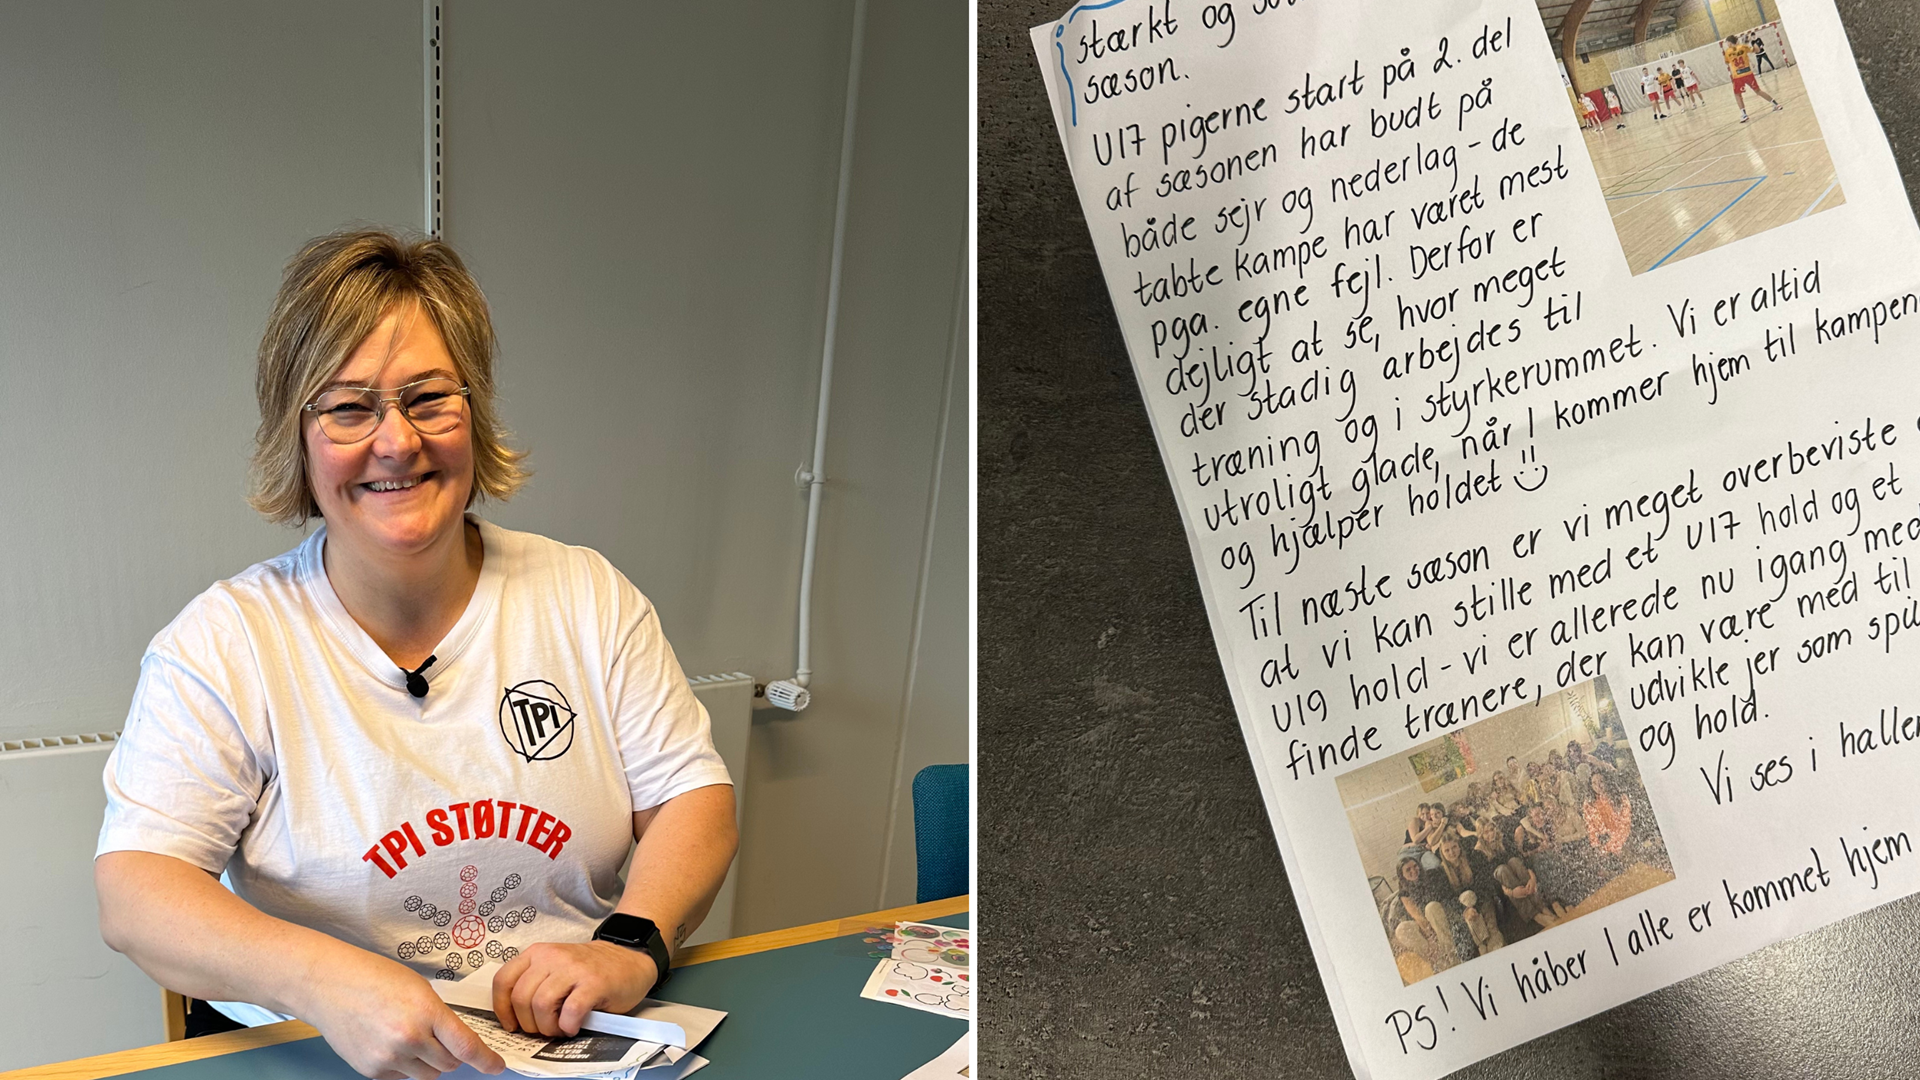 TPI
TPI STØTTER
stærkt og
sæson.
U17 pigerne start på 2. del
af sæsonen har budt på
både sejr og nederlag - de
tabte kampe har været mest
pga. egne fejl. Derfor er
dejligt at se, hvor meget
der stadig arbejdes til
træning og i styrkerummet. Vi er altid
utroligt glade, når I kommer hjem til kampen
og hjælper holdet
Til næste sæson er vi meget overbeviste
at vi kan stille med et U17 hold og et
U19 hold - vi er allerede nu igang med
finde trænere, der kan være med til
udvikle jer som
og hold.
Vi ses i hallen
PS! Vi håber I alle er kommet hjem